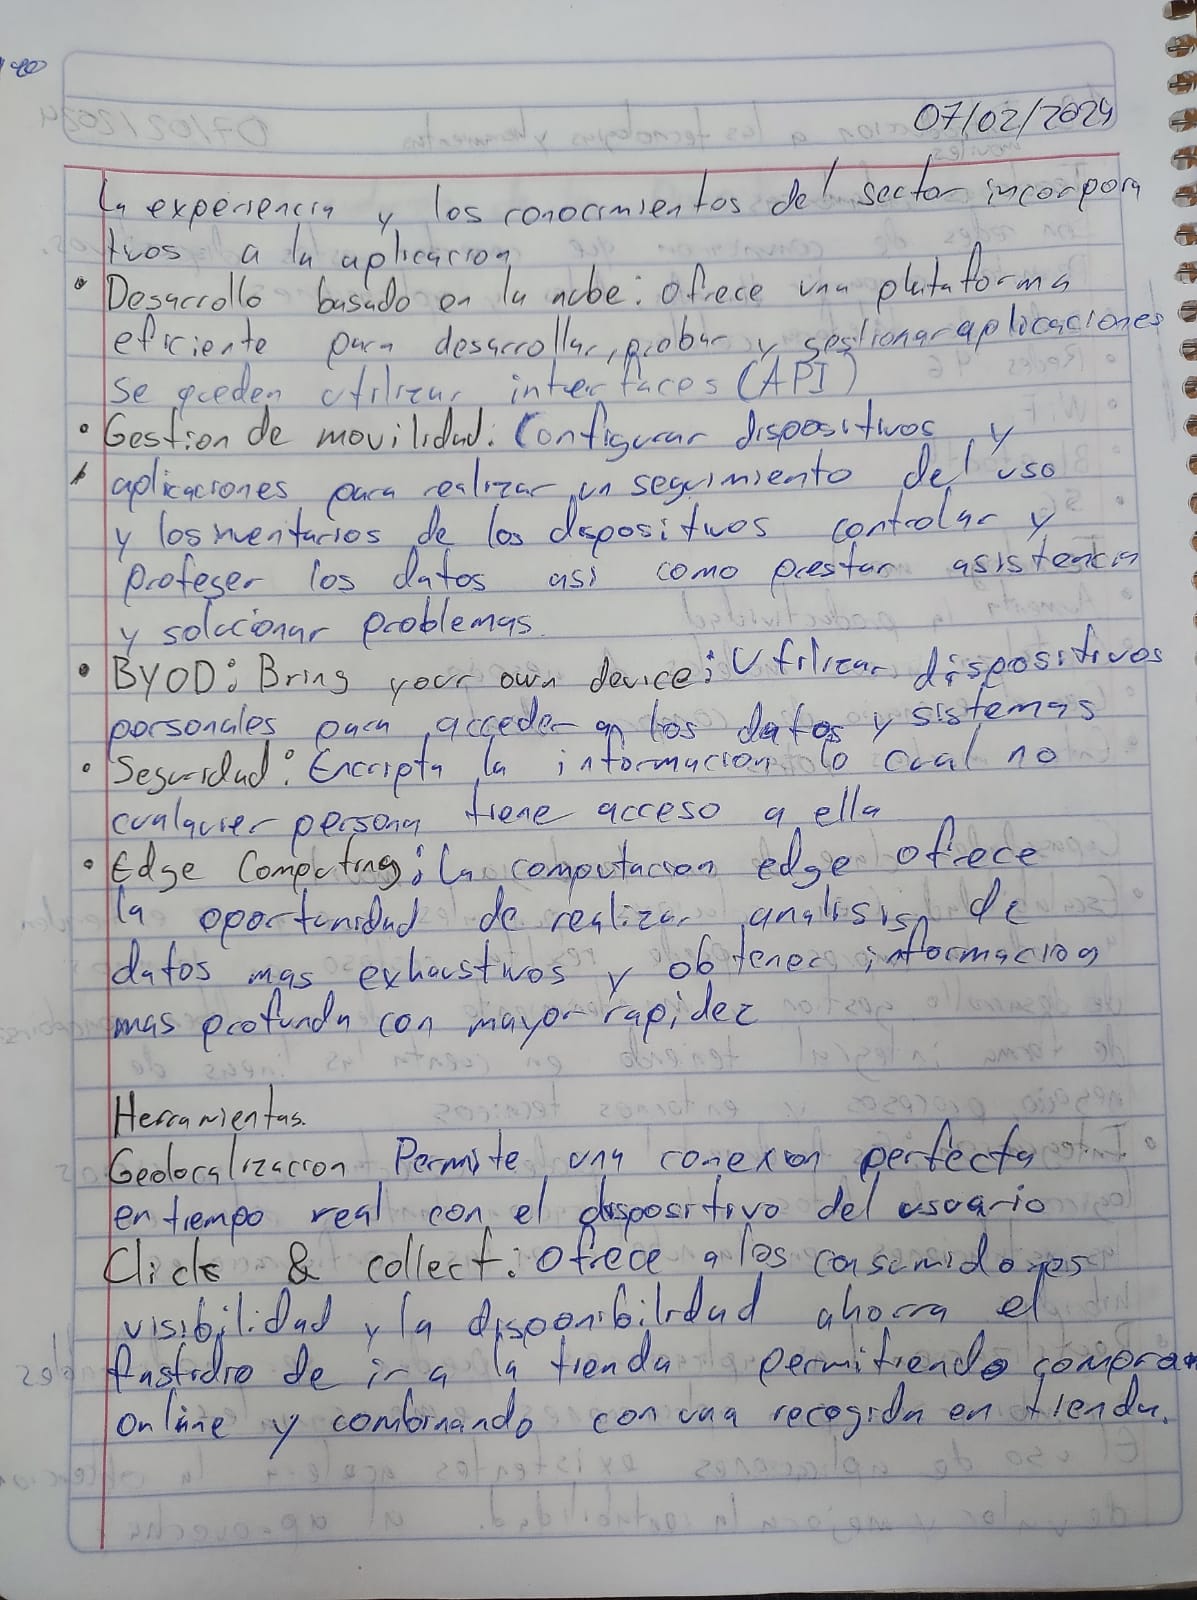 07/02/2024
La experiencia y los conocimientos del sector incorpora
tivos a la aplicacion
• Desarrollo basado en la nube: ofrece una plataforma
eficiente para desarrollar, probar y gestionar aplicaciones
se pueden utilizar interfaces (API)
• Gestion de movilidad: Configurar dispositivos y
aplicaciones para realizar un seguimiento del uso
y los inventarios de los dispositivos controlar y
proteger los datos asi como prestar asistencia
y solucionar problemas.
• BYOD: Bring your own device: Utilizar dispositivos
personales para acceder a los datos y sistemas
• Seguridad: Encripta la informacion lo cual no
cualquier persona tiene acceso a ella
• Edge Computing: La computacion edge ofrece
la oportunidad de realizar analisis de
datos mas exhaustivos y obtener informacion
mas profunda con mayor rapidez
Herramientas.
Geolocalizacion Permite una conexion perfecta
en tiempo real con el dispositivo del usuario
Click & collect: Ofrece a los consumidores
visibilidad y la disponibilidad ahorra el
fastidio de ir a la tienda permitiendo comprar
online y combinando con una recogida en tienda.